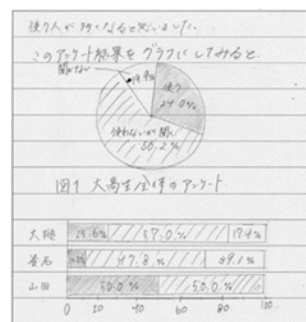 使う人が多くなると思いました。
このアンケート結果をグラフにしてみると
聞かない
19.9%
使う
24.0%
使わないが聞く
56.2%
図1 大高生全体のアンケート
大槌 25.6% 57.0% 17.4%
釜石 47.8% 39.1%
山田 50.0% 50.0%
0 20 40 60 80 100